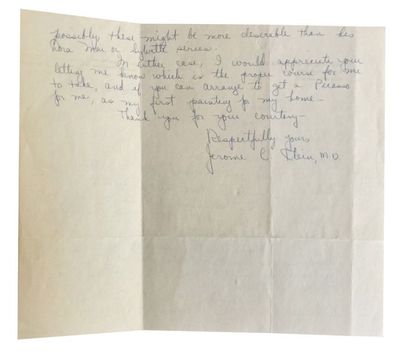 possibly these might be more desirable than his
Dora Maar or Sylvette series.
In either case, I would appreciate your
letting me know which is the proper course for me
to take, and if you can arrange to get a Picasso
for me, as my first painting for my home—
Thank you for your courtesy—
Respectfully yours,
Jerome C. Stein, M.D.